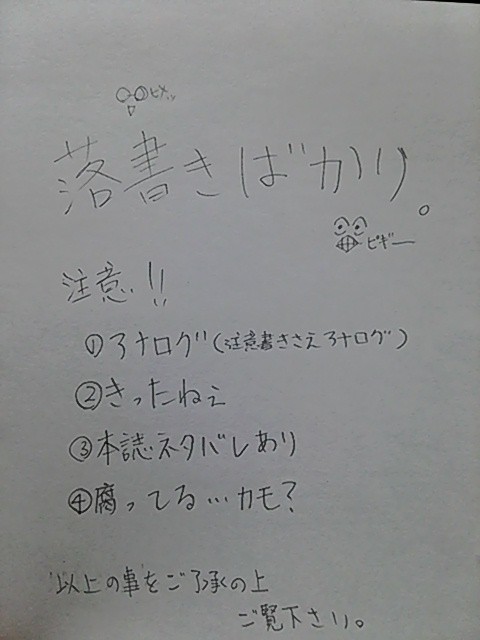 ピギッ
落書きばかり。
ピギー
注意!!
①アナログ(注意書きさえアナログ)
②きったねぇ
③本誌ネタバレあり
④腐ってる…カモ?
以上の事をご了承の上
ご覧下さい。